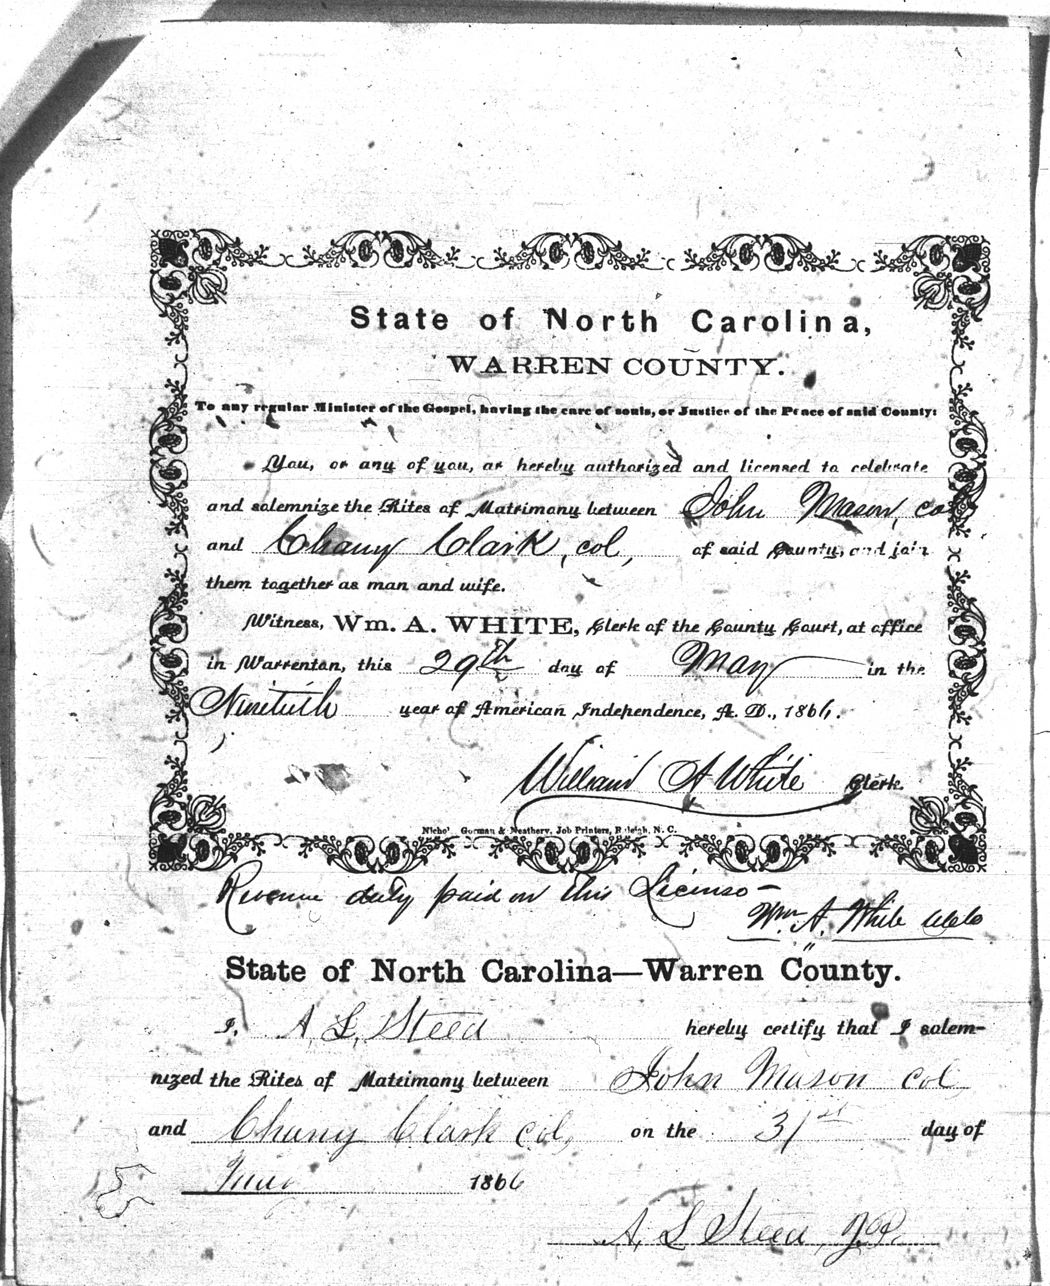 State of North Carolina,
WARREN COUNTY.
To any regular Minister of the Gospel, having the care of souls, or Justice of the Peace of said County:
You, or any of you, are hereby authorized and licensed to celebrate
and solemnize the Rites of Matrimony between John Mason, col
and Chany Clark, col, of said County, and join
them together as man and wife.
Witness, Wm. A. WHITE, Clerk of the County Court, at office
in Warrenton, this 29th day of May in the
Ninetieth year of American Independence, A. D., 1866.
William A White Clerk.
Nichols, Gorman & Neathery, Job Printers, Raleigh, N. C.
Revenue duty paid on this License -
Wm A. White
State of North Carolina—Warren County.
I, A. L. Steed hereby certify that I solem-
nized the Rites of Matrimony between John Mason col
and Chany Clark col, on the 31st day of
May 1866
A. L. Steed, J.P.